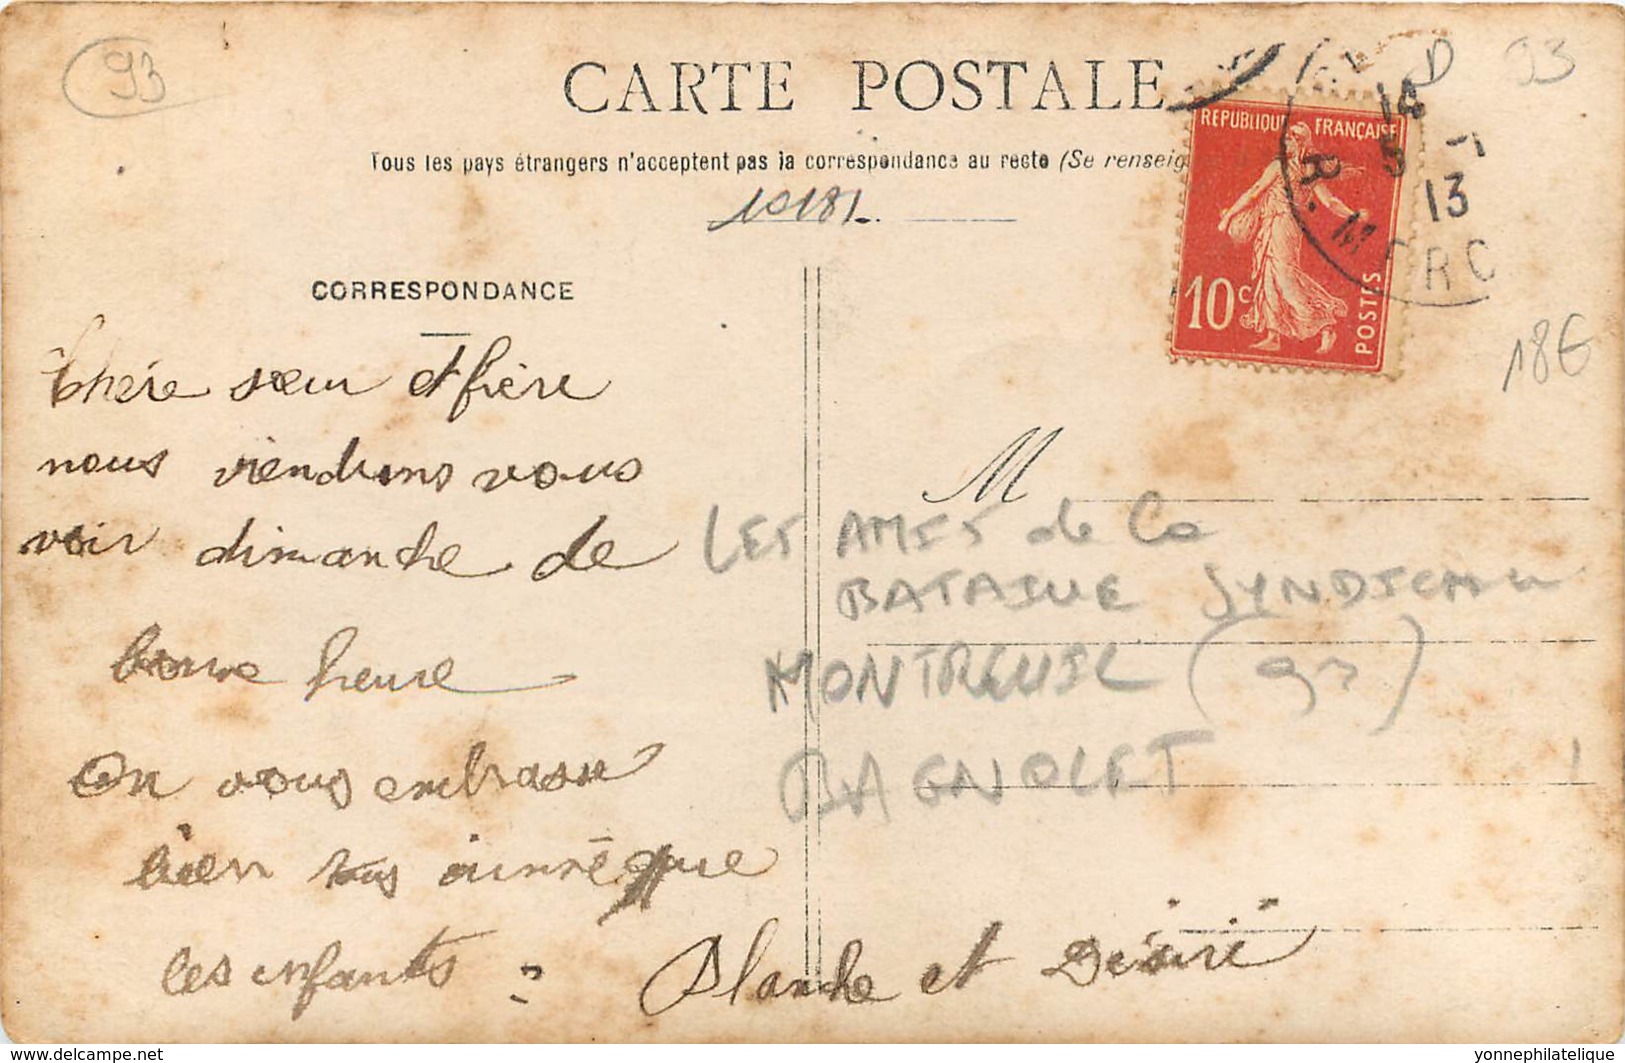 93
CARTE POSTALE
D 93
Tous les pays étrangers n'acceptent pas la correspondance au recto (Se renseig
10181
REPUBLIQUE FRANÇAISE
10c
POSTES
14
5 - 1
13
R. MARC
18€
CORRESPONDANCE
Chère sœur et frère
nous viendrons vous
voir dimanche de
bonne heure
On vous embrasse
bien tous ainsi que
les enfants
Blanche et Désiré
M
LES AMIS de la
BATAILLE SYNDICALE
MONTREUIL (93)
BAGNOLET
www.delcampe.net
yonnephilatelique